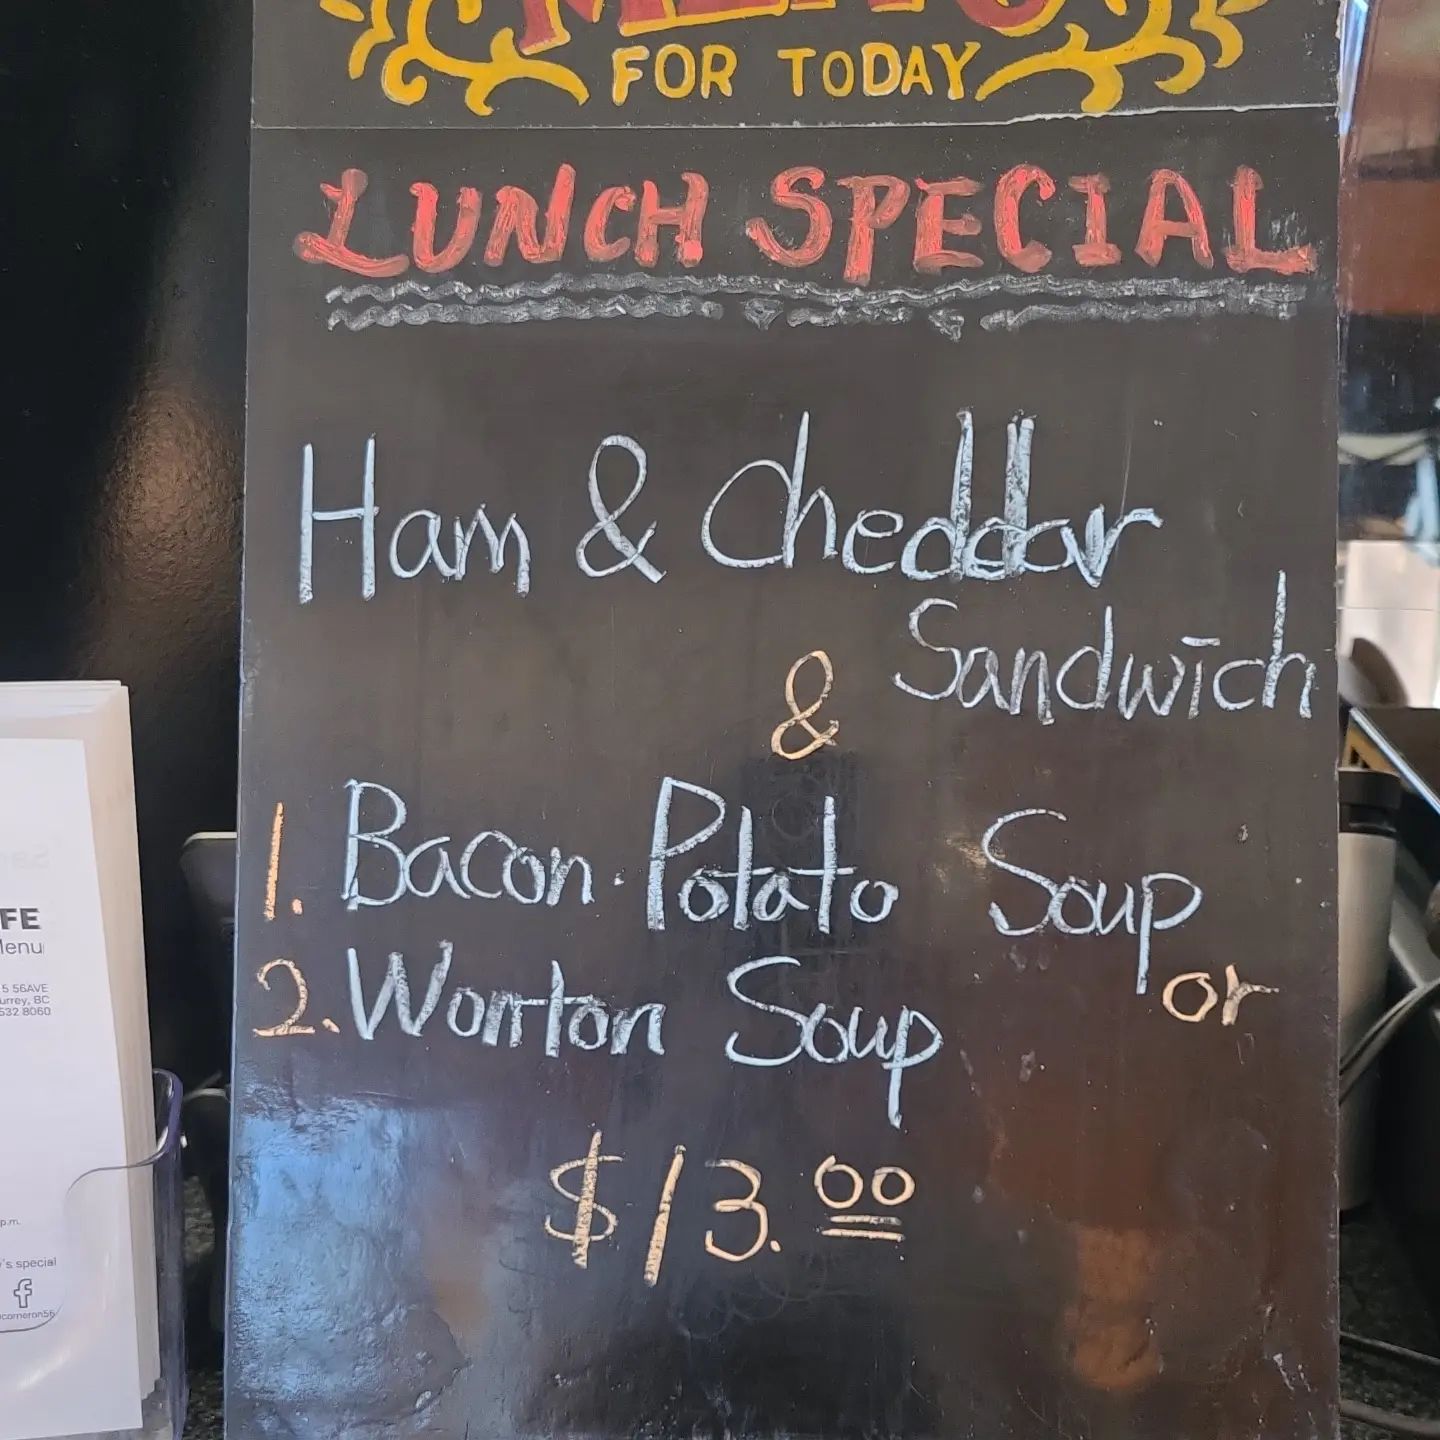 MENU
FOR TODAY
LUNCH SPECIAL
Ham & Cheddar
Sandwich
&
1. Bacon. Potato Soup
or
2. Wonton Soup
$13.00
FE
Menu
5 56AVE
urrey, BC
532 8060
p.m.
's special
f
cameron56